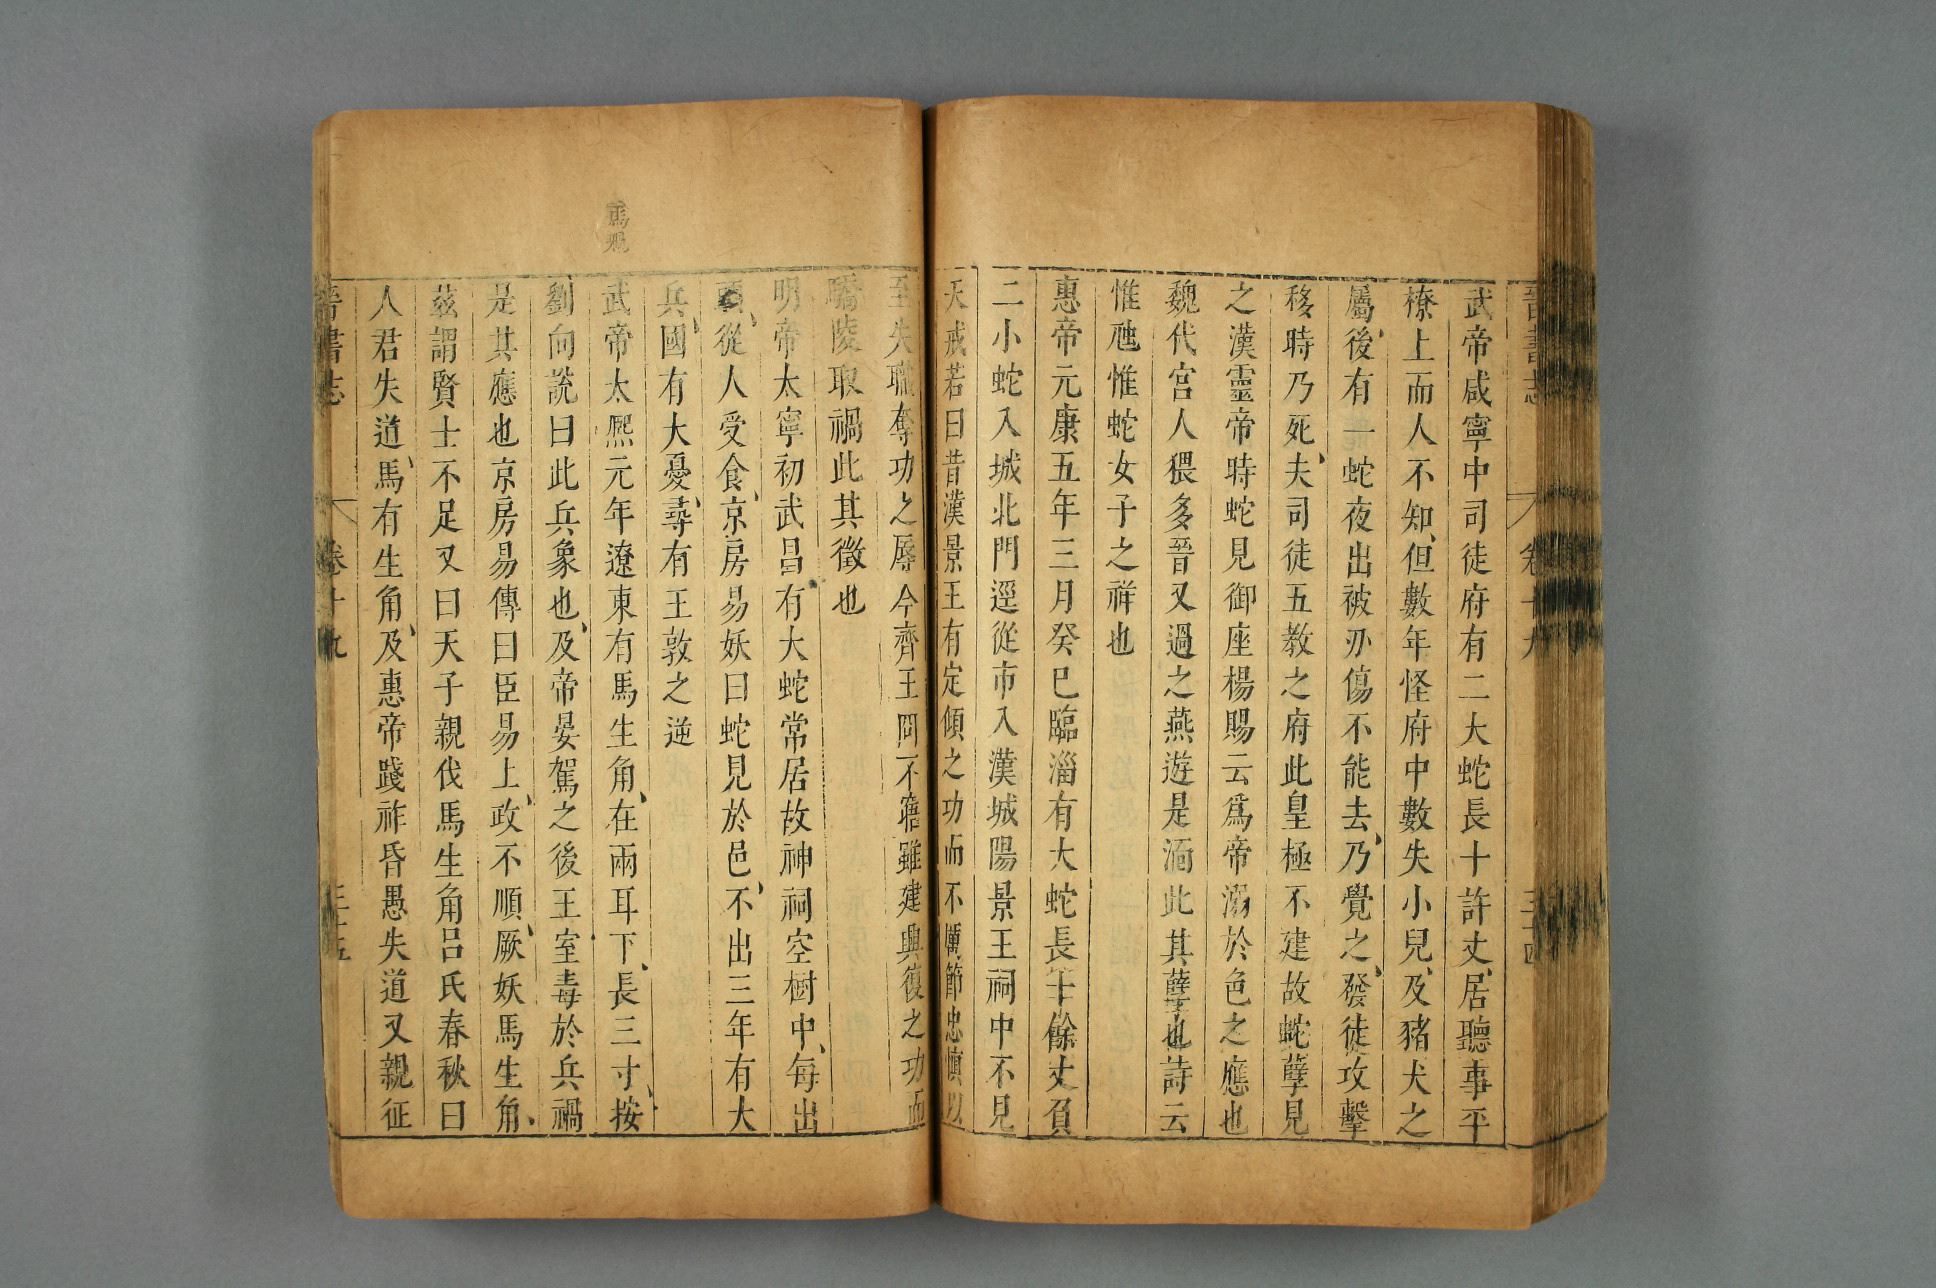 武帝咸寧中司徒府有二大蛇長十許丈居聽事平
橑上而人不知但數年怪府中數失小兒及豬犬之
屬後有一蛇夜出被刃傷不能去乃覺之發徒攻擊
移時乃死夫司徒五教之府此皇極不建故蛇孽見
之漢靈帝時蛇見御座楊賜云爲帝溺於色之應也
魏代宮人猥多晉又過之燕遊是湎此其孽也詩云
惟虺惟蛇女子之祥也
惠帝元康五年三月癸巳臨淄有大蛇長十餘丈負
二小蛇入城北門逕從市入漢城陽景王祠中不見
天戒若曰昔漢景王有定傾之功而不厲節忠慎以
至失職奪功之辱今齊王冏不寤雖建興復之功而
驕陵取禍此其徵也
明帝太寧初武昌有大蛇常居故神祠空樹中每出
頭從人受食京房易妖曰蛇見於邑不出三年有大
兵國有大憂尋有王敦之逆
馬禍
武帝太熙元年遼東有馬生角在兩耳下長三寸按
劉向說曰此兵象也及帝晏駕之後王室毒於兵禍
是其應也京房易傳曰臣易上政不順厥妖馬生角
茲謂賢士不足又曰天子親伐馬生角呂氏春秋曰
人君失道馬有生角及惠帝踐祚昏愚失道又親征
晉書志 卷十九 三十五